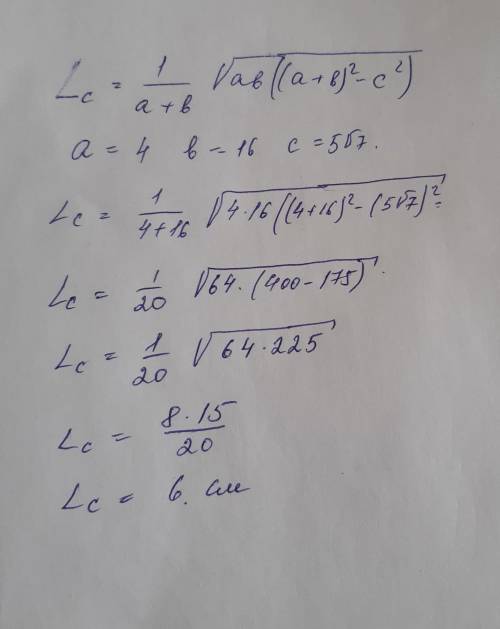 Lc = 1/(a+b) √(ab((a+b)²-c²))
a = 4 b = 16 c = 5√7.
Lc = 1/(4+16) √(4·16((4+16)²-(5√7)² =
Lc = 1/20 √(64·(400-175))
Lc = 1/20 √(64·225)
Lc = (8·15)/20
Lc = 6. см